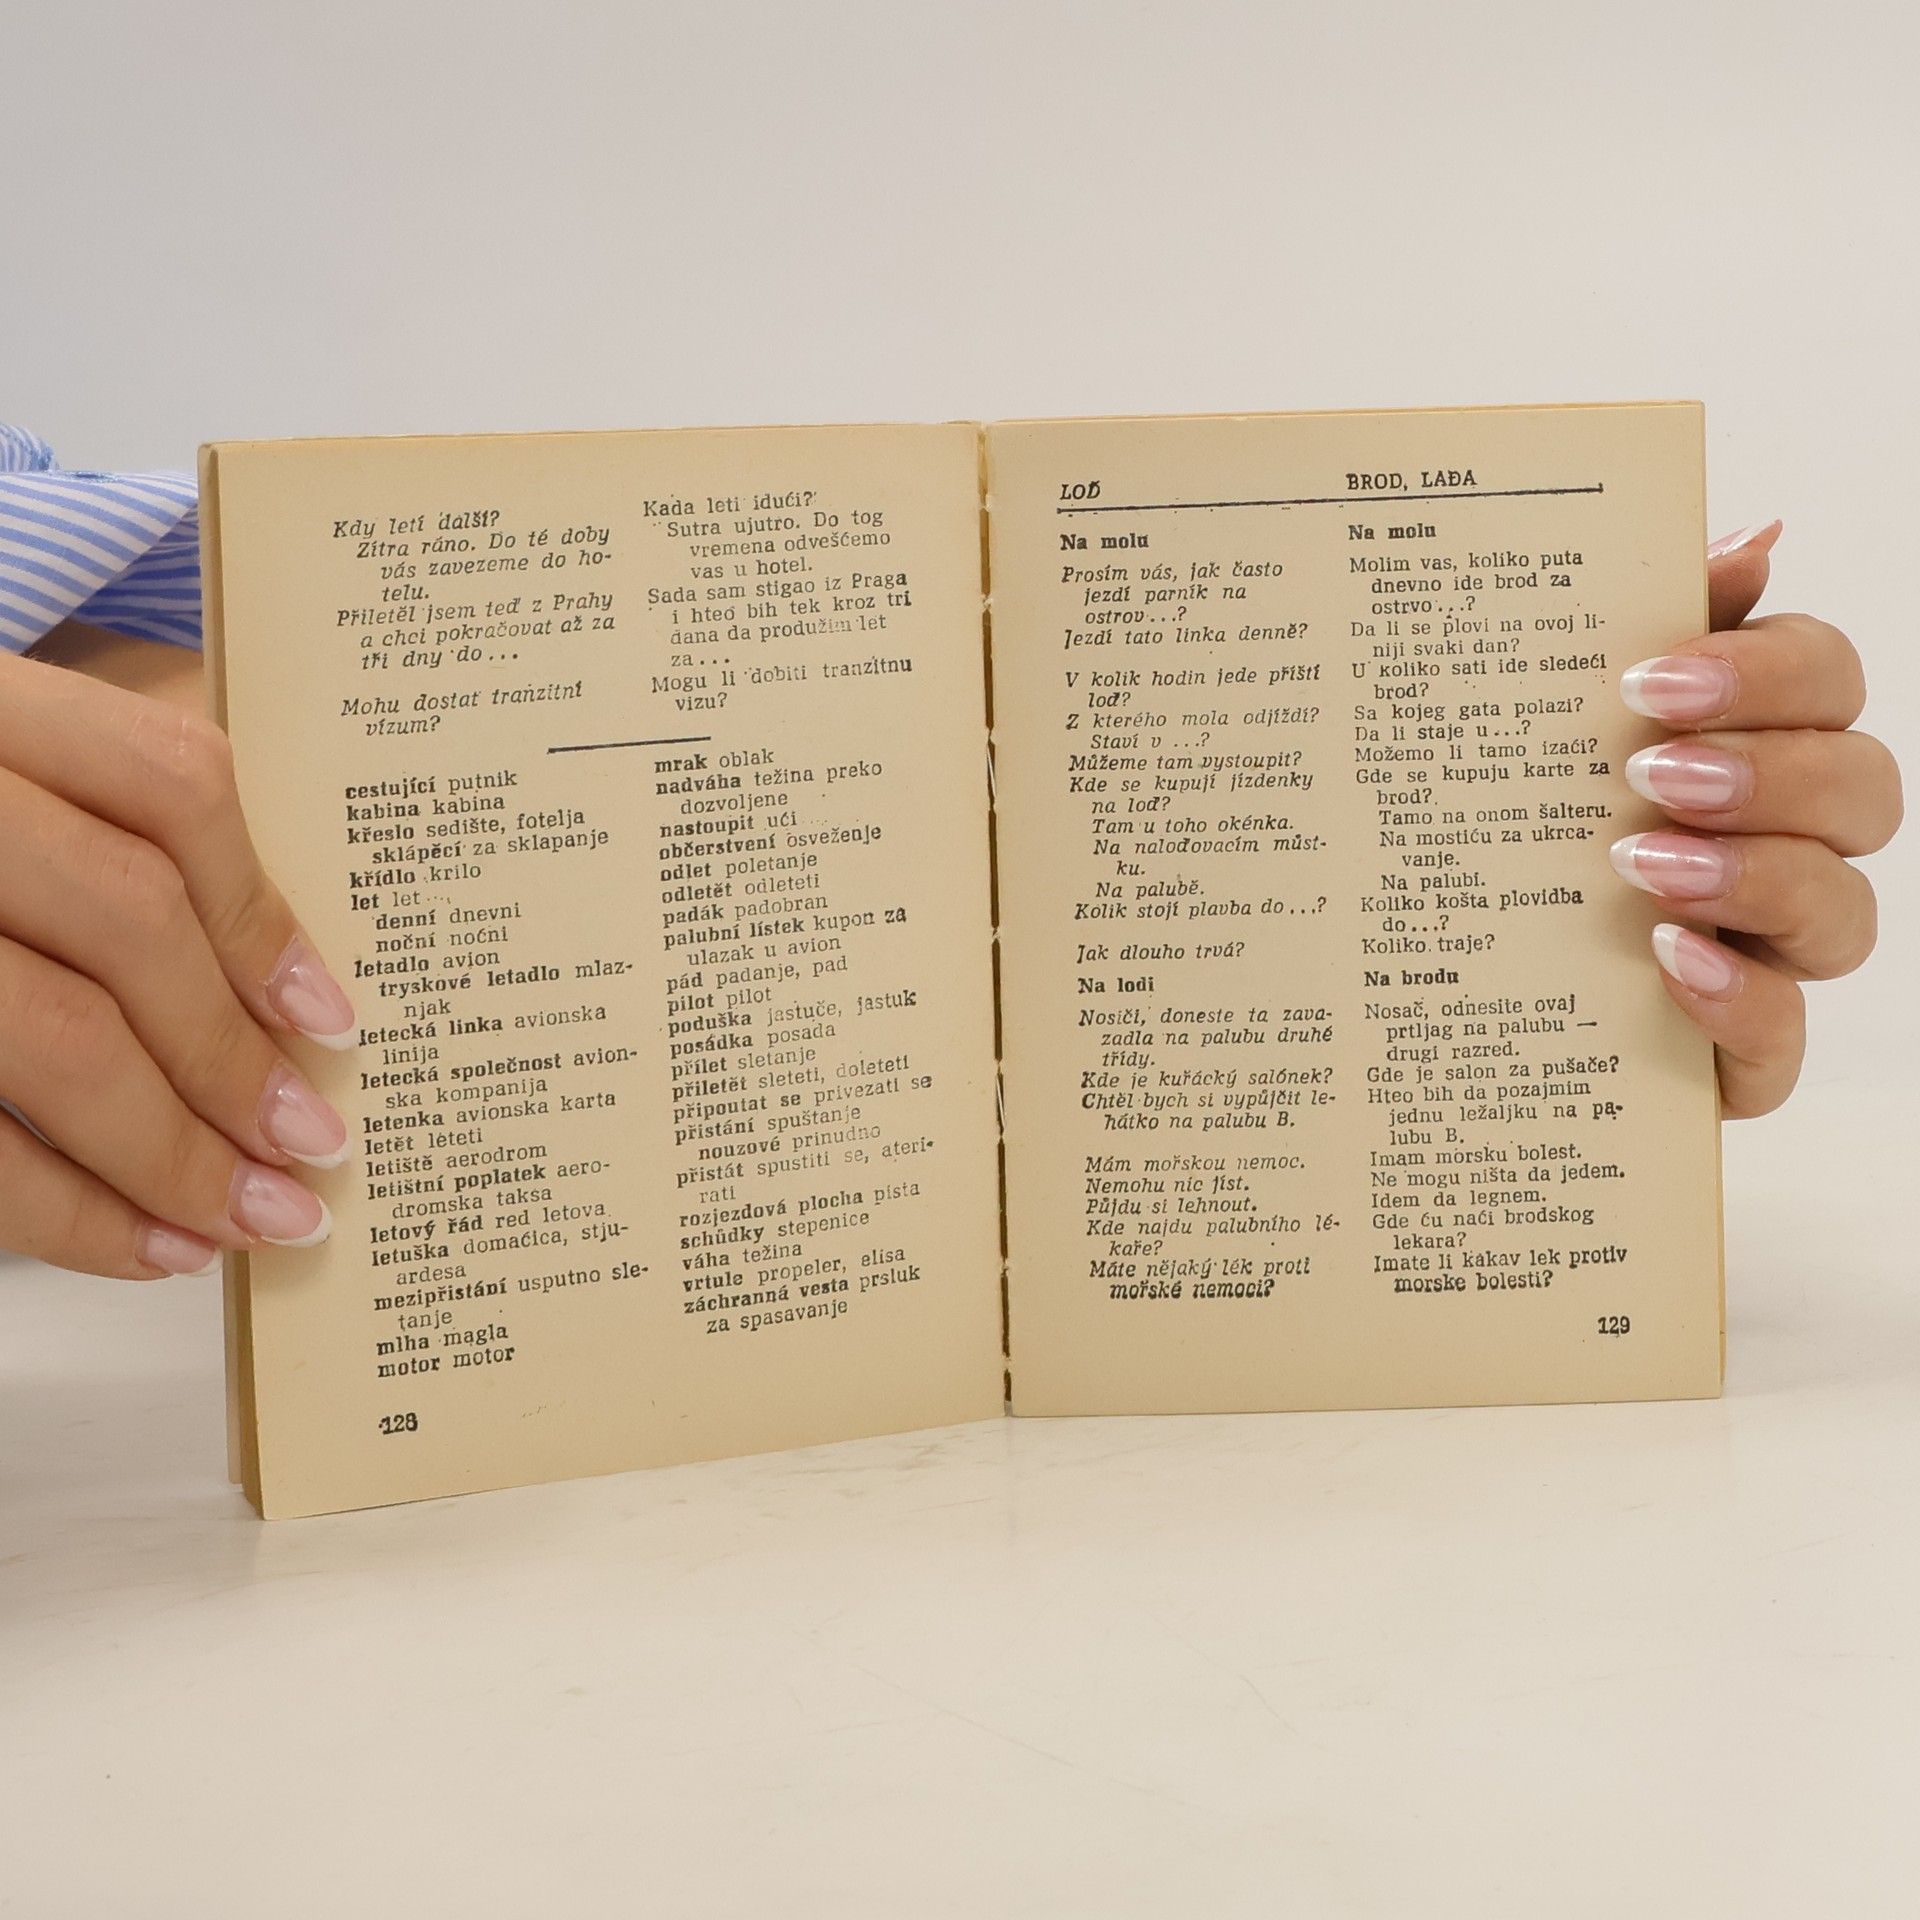 Kdy letí další?
Zítra ráno. Do té doby
vás zavezeme do ho-
telu.
Přiletěl jsem teď z Prahy
a chci pokračovat až za
tři dny do...
Mohu dostat tranzitní
vízum?
Kada leti idući?
Sutra ujutro. Do tog
vremena odvešćemo
vas u hotel.
Sada sam stigao iz Praga
i hteo bih tek kroz tri
dana da produžim let
za...
Mogu li dobiti tranzitnu
vizu?
cestující putnik
kabina kabina
křeslo sedište, fotelja
sklápěcí za sklapanje
křídlo krilo
let let
denní dnevni
noční noćni
letadlo avion
tryskové letadlo mlaz-
njak
letecká linka avionska
linija
letecká společnost avion-
ska kompanija
letenka avionska karta
letět leteti
letiště aerodrom
letištní poplatek aero-
dromska taksa
letový řád red letova
letuška domaćica, stju-
ardesa
mezipřistání usputno sle-
tanje
mlha magla
motor motor
mrak oblak
nadváha težina preko
dozvoljene
nastoupit ući
občerstvení osveženje
odlet poletanje
odletět odleteti
padák padobran
palubní lístek kupon za
ulazak u avion
pád padanje, pad
pilot pilot
poduška jastuče, jastuk
posádka posada
přílet sletanje
přiletět sleteti, doleteti
připoutat se privezati se
přistání spuštanje
nouzové prinudno
přistát spustiti se, ateri-
rati
rozjezdová plocha pista
schůdky stepenice
váha težina
vrtule propeler, elisa
záchranná vesta prsluk
za spasavanje
128
LOĎ BROD, LAĐA
Na molu
Prosím vás, jak často
jezdí parník na
ostrov...?
Jezdí tato linka denně?
V kolik hodin jede příští
loď?
Z kterého mola odjíždí?
Staví v ...?
Můžeme tam vystoupit?
Kde se kupují jízdenky
na loď?
Tam u toho okénka.
Na naloďovacím můst-
ku.
Na palubě.
Kolik stojí plavba do...?
Jak dlouho trvá?
Na lodi
Nosiči, doneste ta zava-
zadla na palubu druhé
třídy.
Kde je kuřácký salónek?
Chtěl bych si vypůjčit le-
hátko na palubu B.
Mám mořskou nemoc.
Nemohu nic jíst.
Půjdu si lehnout.
Kde najdu palubního lé-
kaře?
Máte nějaký lék proti
mořské nemoci?
Na molu
Molim vas, koliko puta
dnevno ide brod za
ostrvo...?
Da li se plovi na ovoj li-
niji svaki dan?
U koliko sati ide sledeći
brod?
Sa kojeg gata polazi?
Da li staje u...?
Možemo li tamo izaći?
Gde se kupuju karte za
brod?
Tamo na onom šalteru.
Na mostiću za ukrca-
vanje.
Na palubi.
Koliko košta plovidba
do...?
Koliko traje?
Na brodu
Nosač, odnesite ovaj
prtljag na palubu —
drugi razred.
Gde je salon za pušače?
Hteo bih da pozajmim
jednu ležaljku na pa-
lubu B.
Imam morsku bolest.
Ne mogu ništa da jedem.
Idem da legnem.
Gde ću naći brodskog
lekara?
Imate li kakav lek protiv
morske bolesti?
129